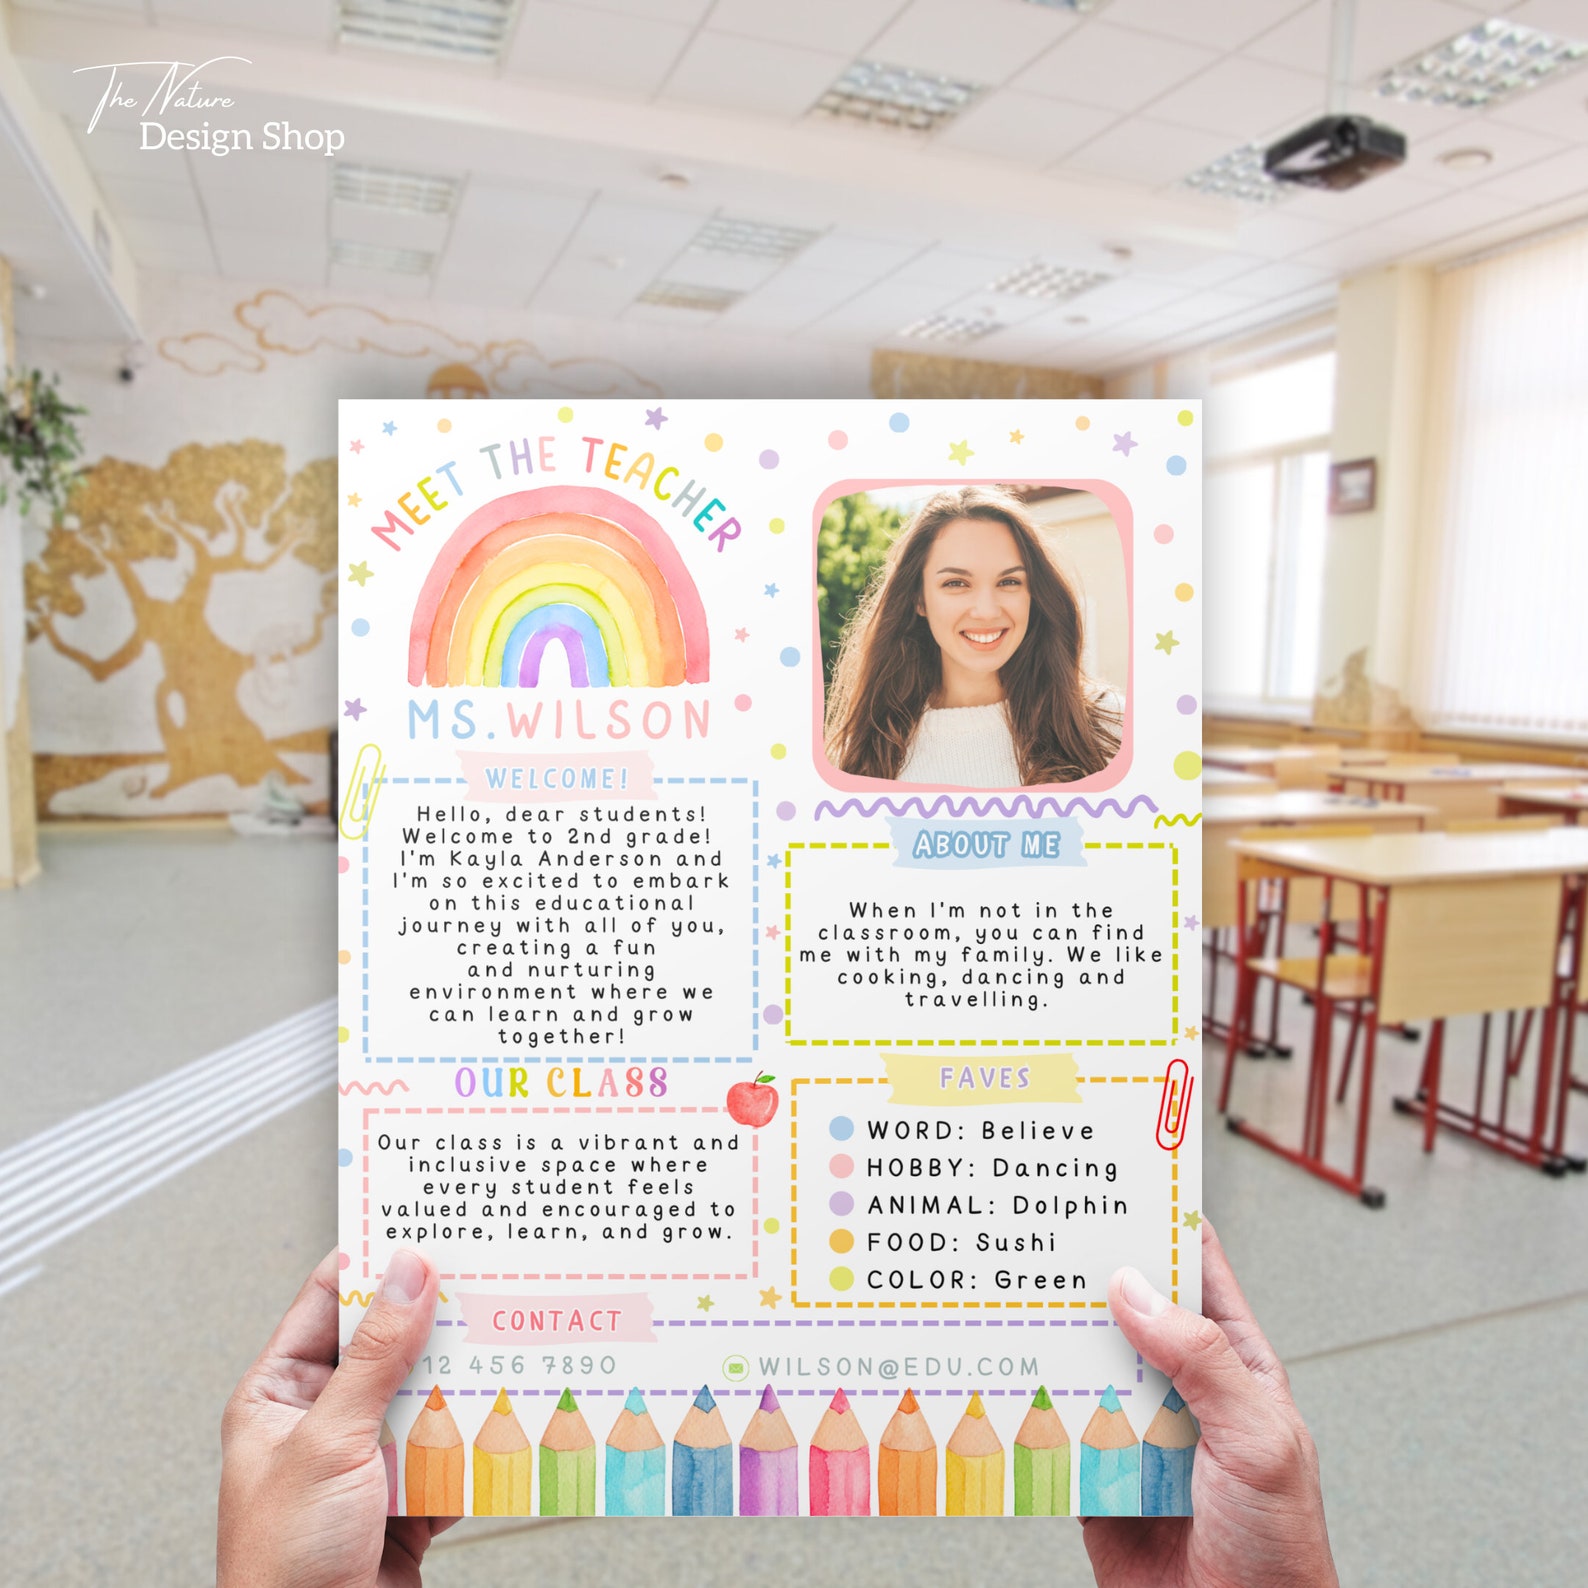 The Nature
Design Shop
MEET THE TEACHER
MS.WILSON
WELCOME!
Hello, dear students!
Welcome to 2nd grade!
I'm Kayla Anderson and
I'm so excited to embark
on this educational
journey with all of you,
creating a fun
and nurturing
environment where we
can learn and grow
together!
OUR CLASS
Our class is a vibrant and
inclusive space where
every student feels
valued and encouraged to
explore, learn, and grow.
ABOUT ME
When I'm not in the
classroom, you can find
me with my family. We like
cooking, dancing and
travelling.
FAVES
WORD: Believe
HOBBY: Dancing
ANIMAL: Dolphin
FOOD: Sushi
COLOR: Green
CONTACT
12 456 7890
WILSON@EDU.COM